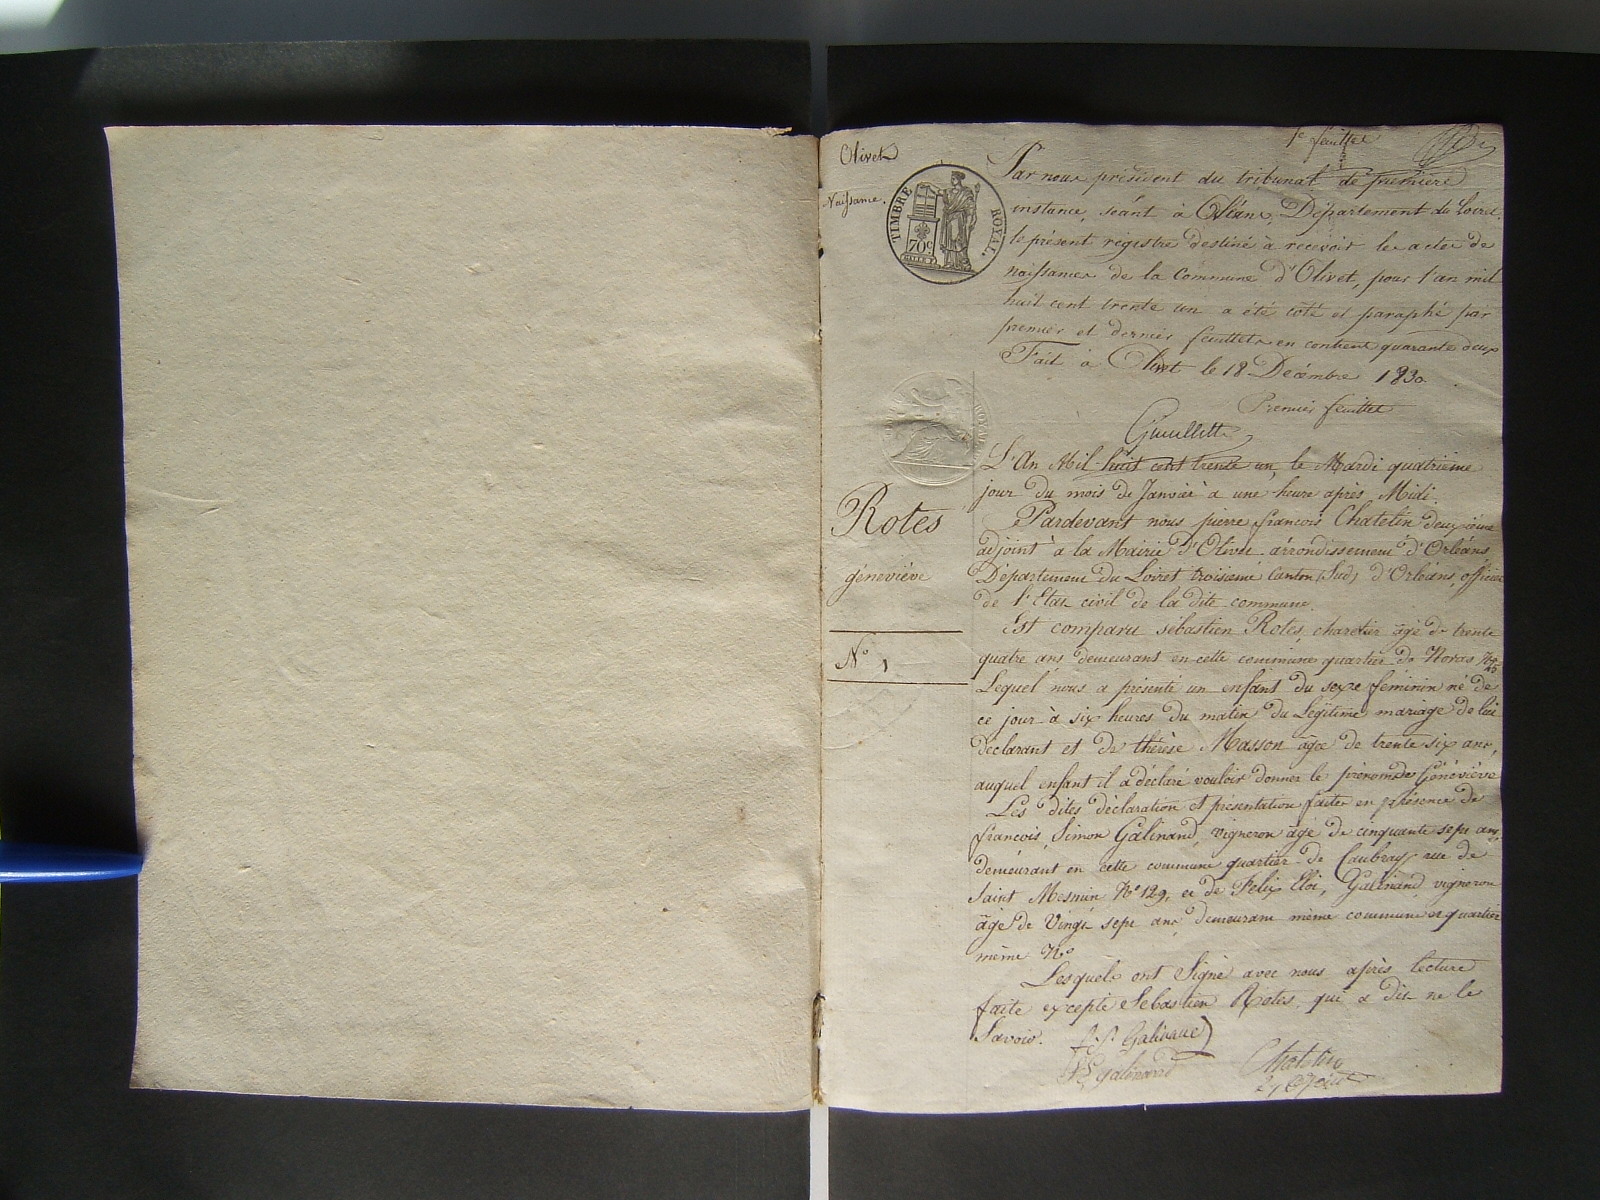 Olivet
Naissance.
TIMBRE ROYAL.
70c.
1e feuillet
Par nous président du tribunal de première
instance, séant à Orléans, Département du Loiret,
le présent régistre destiné à recevoir les actes de
naissances de la Commune d'Olivet, pour l'an mil
huit cent trente un a été coté et paraphé par
premier et dernier feuillets en contient quarante deux
Fait à Olivet le 18 Décembre 1830.
Premier feuillet
Rotes
géneviève
N° 1
L'An Mil huit cent trente un, le Mardi quatrième
jour du mois de Janvier à une heure après Midi.
Pardevant nous pierre françois Chatelin deuxième
adjoint à la Mairie d'Olivet arrondissement d'Orléans,
Département du Loiret troisième Canton (Sud) d'Orléans, officier
de l'Etat civil de la dite commune.
Est comparu sébastien Rotes, charetier âgé de trente
quatre ans demeurant en cette commune quartier de
Lequel nous a présenté un enfant du sexe feminin né de
ce jour à six heures du matin du Légitime mariage de lui
déclarant et de thérèse Masson âgée de trente six ans,
auquel enfant il a déclaré vouloir donner le prénoms de Géneviève
Les dites déclaration et présentation faites en présence de
françois, Simon Galinand, vigneron âgé de cinquante sept ans,
demeurant en cette commune quartier de Caubray rue de
Saint Mesmin N° 129, et de Felix Eloi, Galinand vigneron
âgé de Vingt sept ans demeurant même commune et quartier
même N°
Lesquels ont Signé avec nous après lecture
faite excepté Sebastien Rotes, qui a dit ne le
Savoir.
f. S. Galinand
galinand
Chatelin